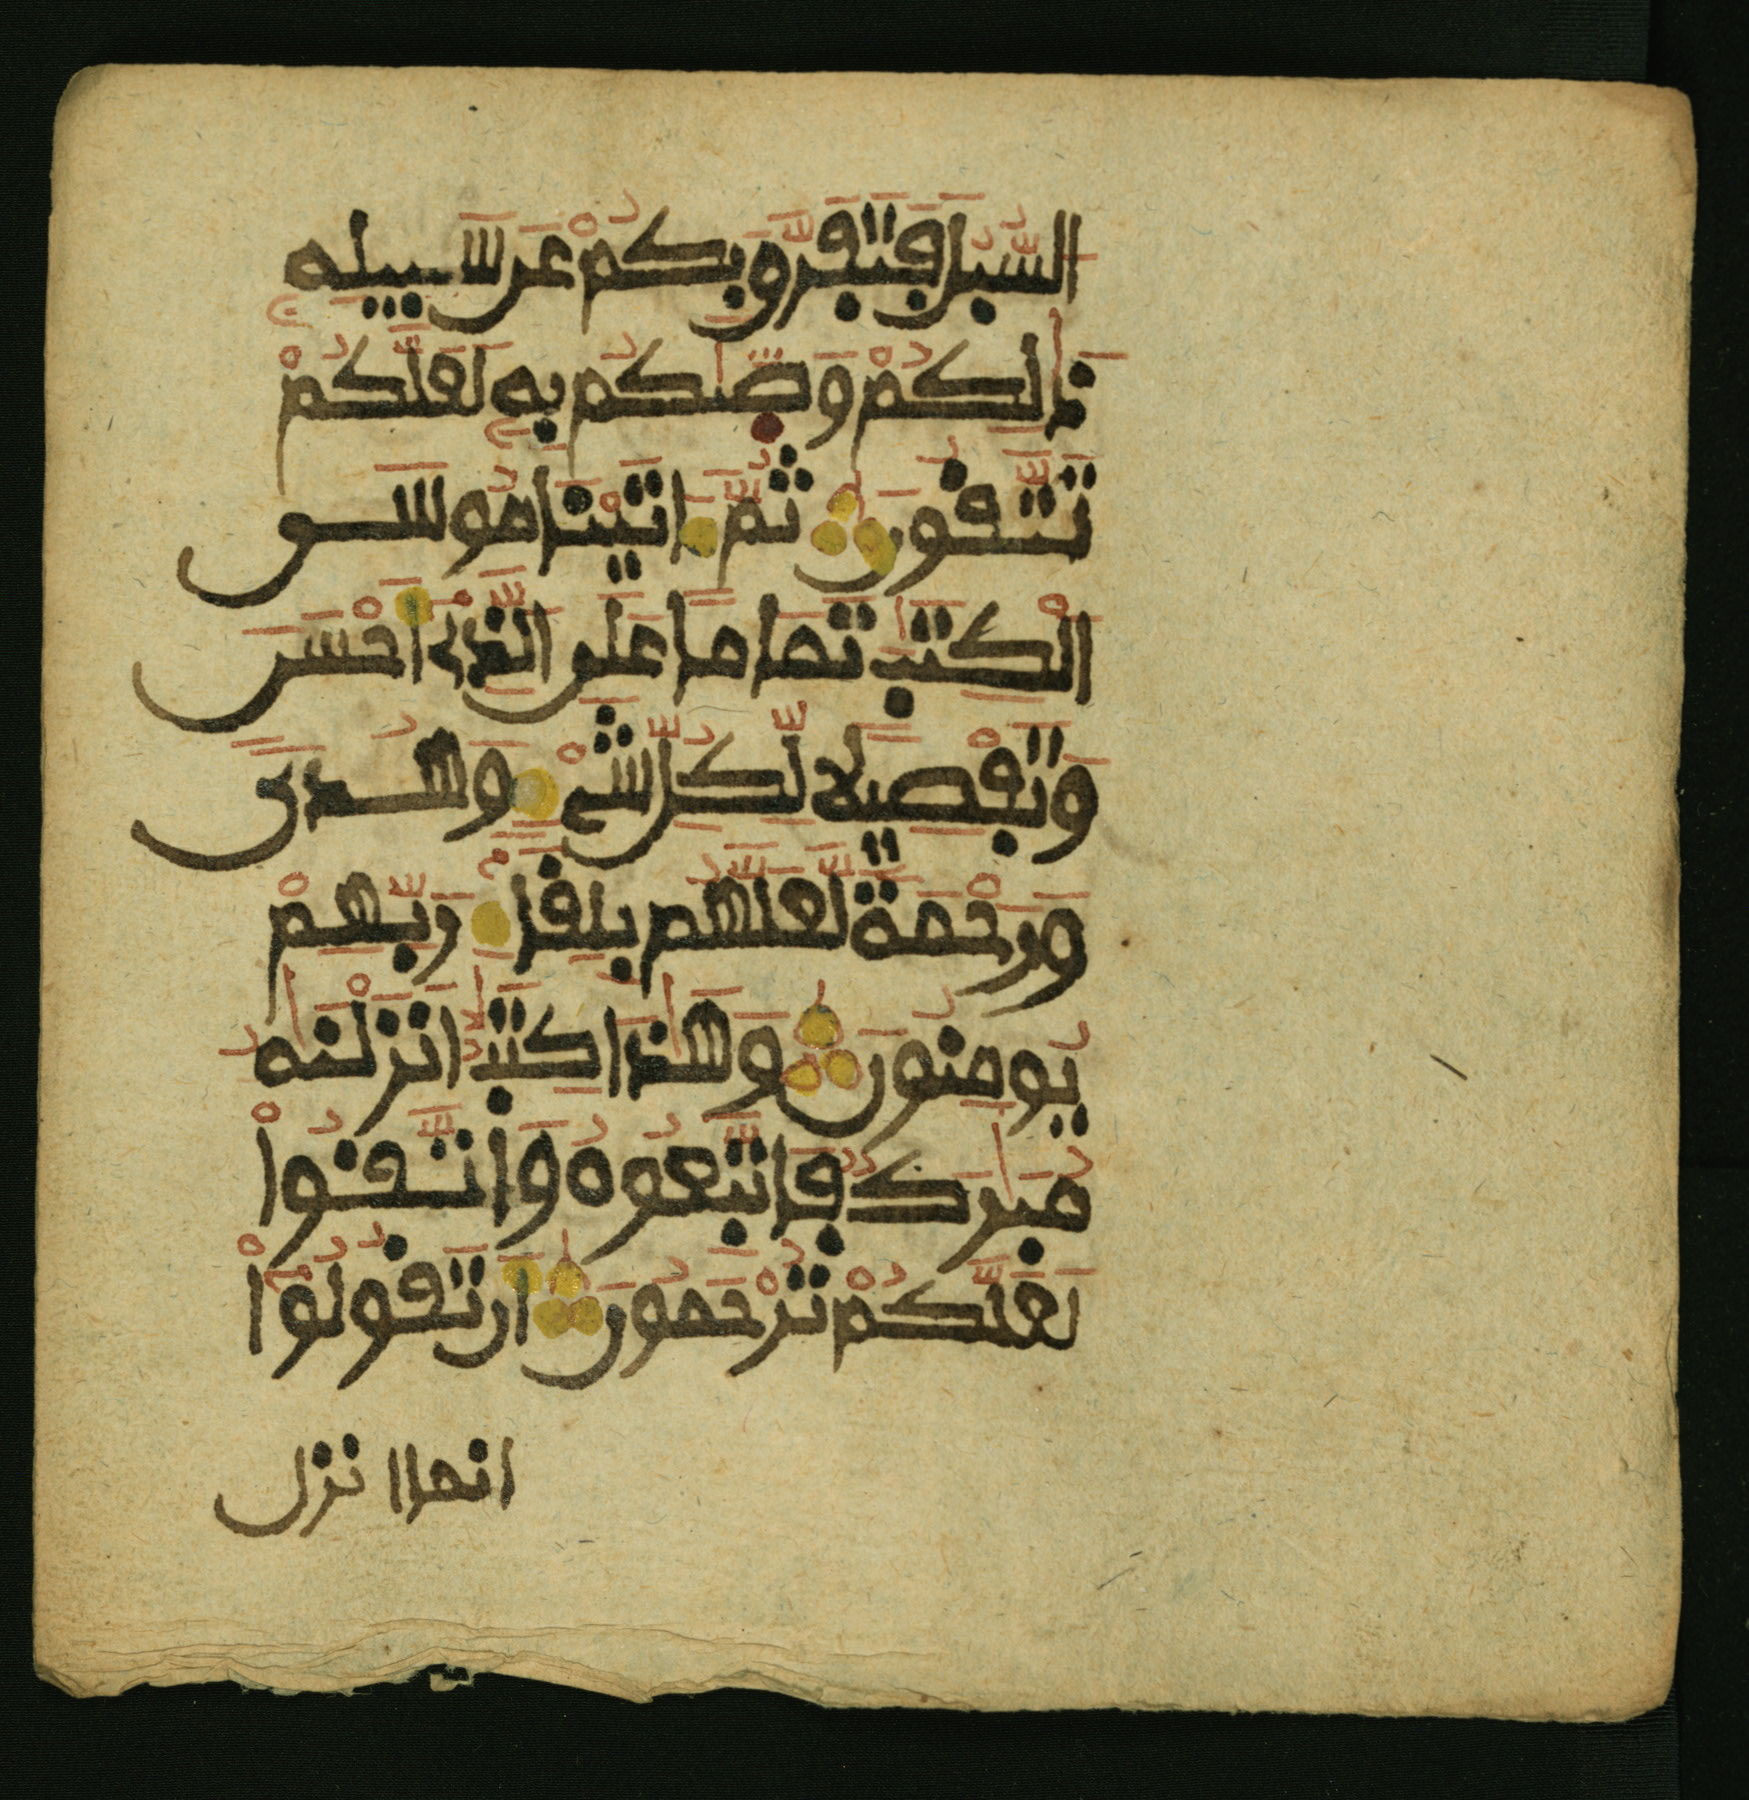 السُّبُلَ فَتَفَرَّقَ بِكُمْ عَن سَبِيلِهِ
ذَٰلِكُمْ وَصَّىٰكُم بِهِ لَعَلَّكُمْ
تَتَّقُونَ ثُمَّ ءَاتَيْنَا مُوسَى
الْكِتَٰبَ تَمَامًا عَلَى الَّذِي أَحْسَنَ
وَتَفْصِيلًا لِّكُلِّ شَيْءٍ وَهُدًى
وَرَحْمَةً لَّعَلَّهُم بِلِقَآءِ رَبِّهِمْ
يُومِنُونَ وَهَٰذَا كِتَٰبٌ أَنزَلْنَٰهُ
مُبَٰرَكٌ فَاتَّبِعُوهُ وَاتَّقُوا
لَعَلَّكُمْ تُرْحَمُونَ أَن تَقُولُوا
انما انزل